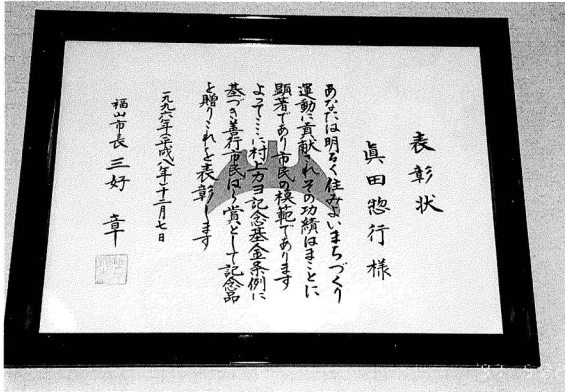 表彰状
眞田惣行様
あなたは明るく住みよいまちづくり
運動に貢献されその功績はまことに
顕著であり市民の模範であります
よってここに村上カヨ記念基金条例に
基づき善行市民ばら賞として記念品
を贈りこれを表彰します
一九九六年(平成八年)十二月七日
福山市長 三好章